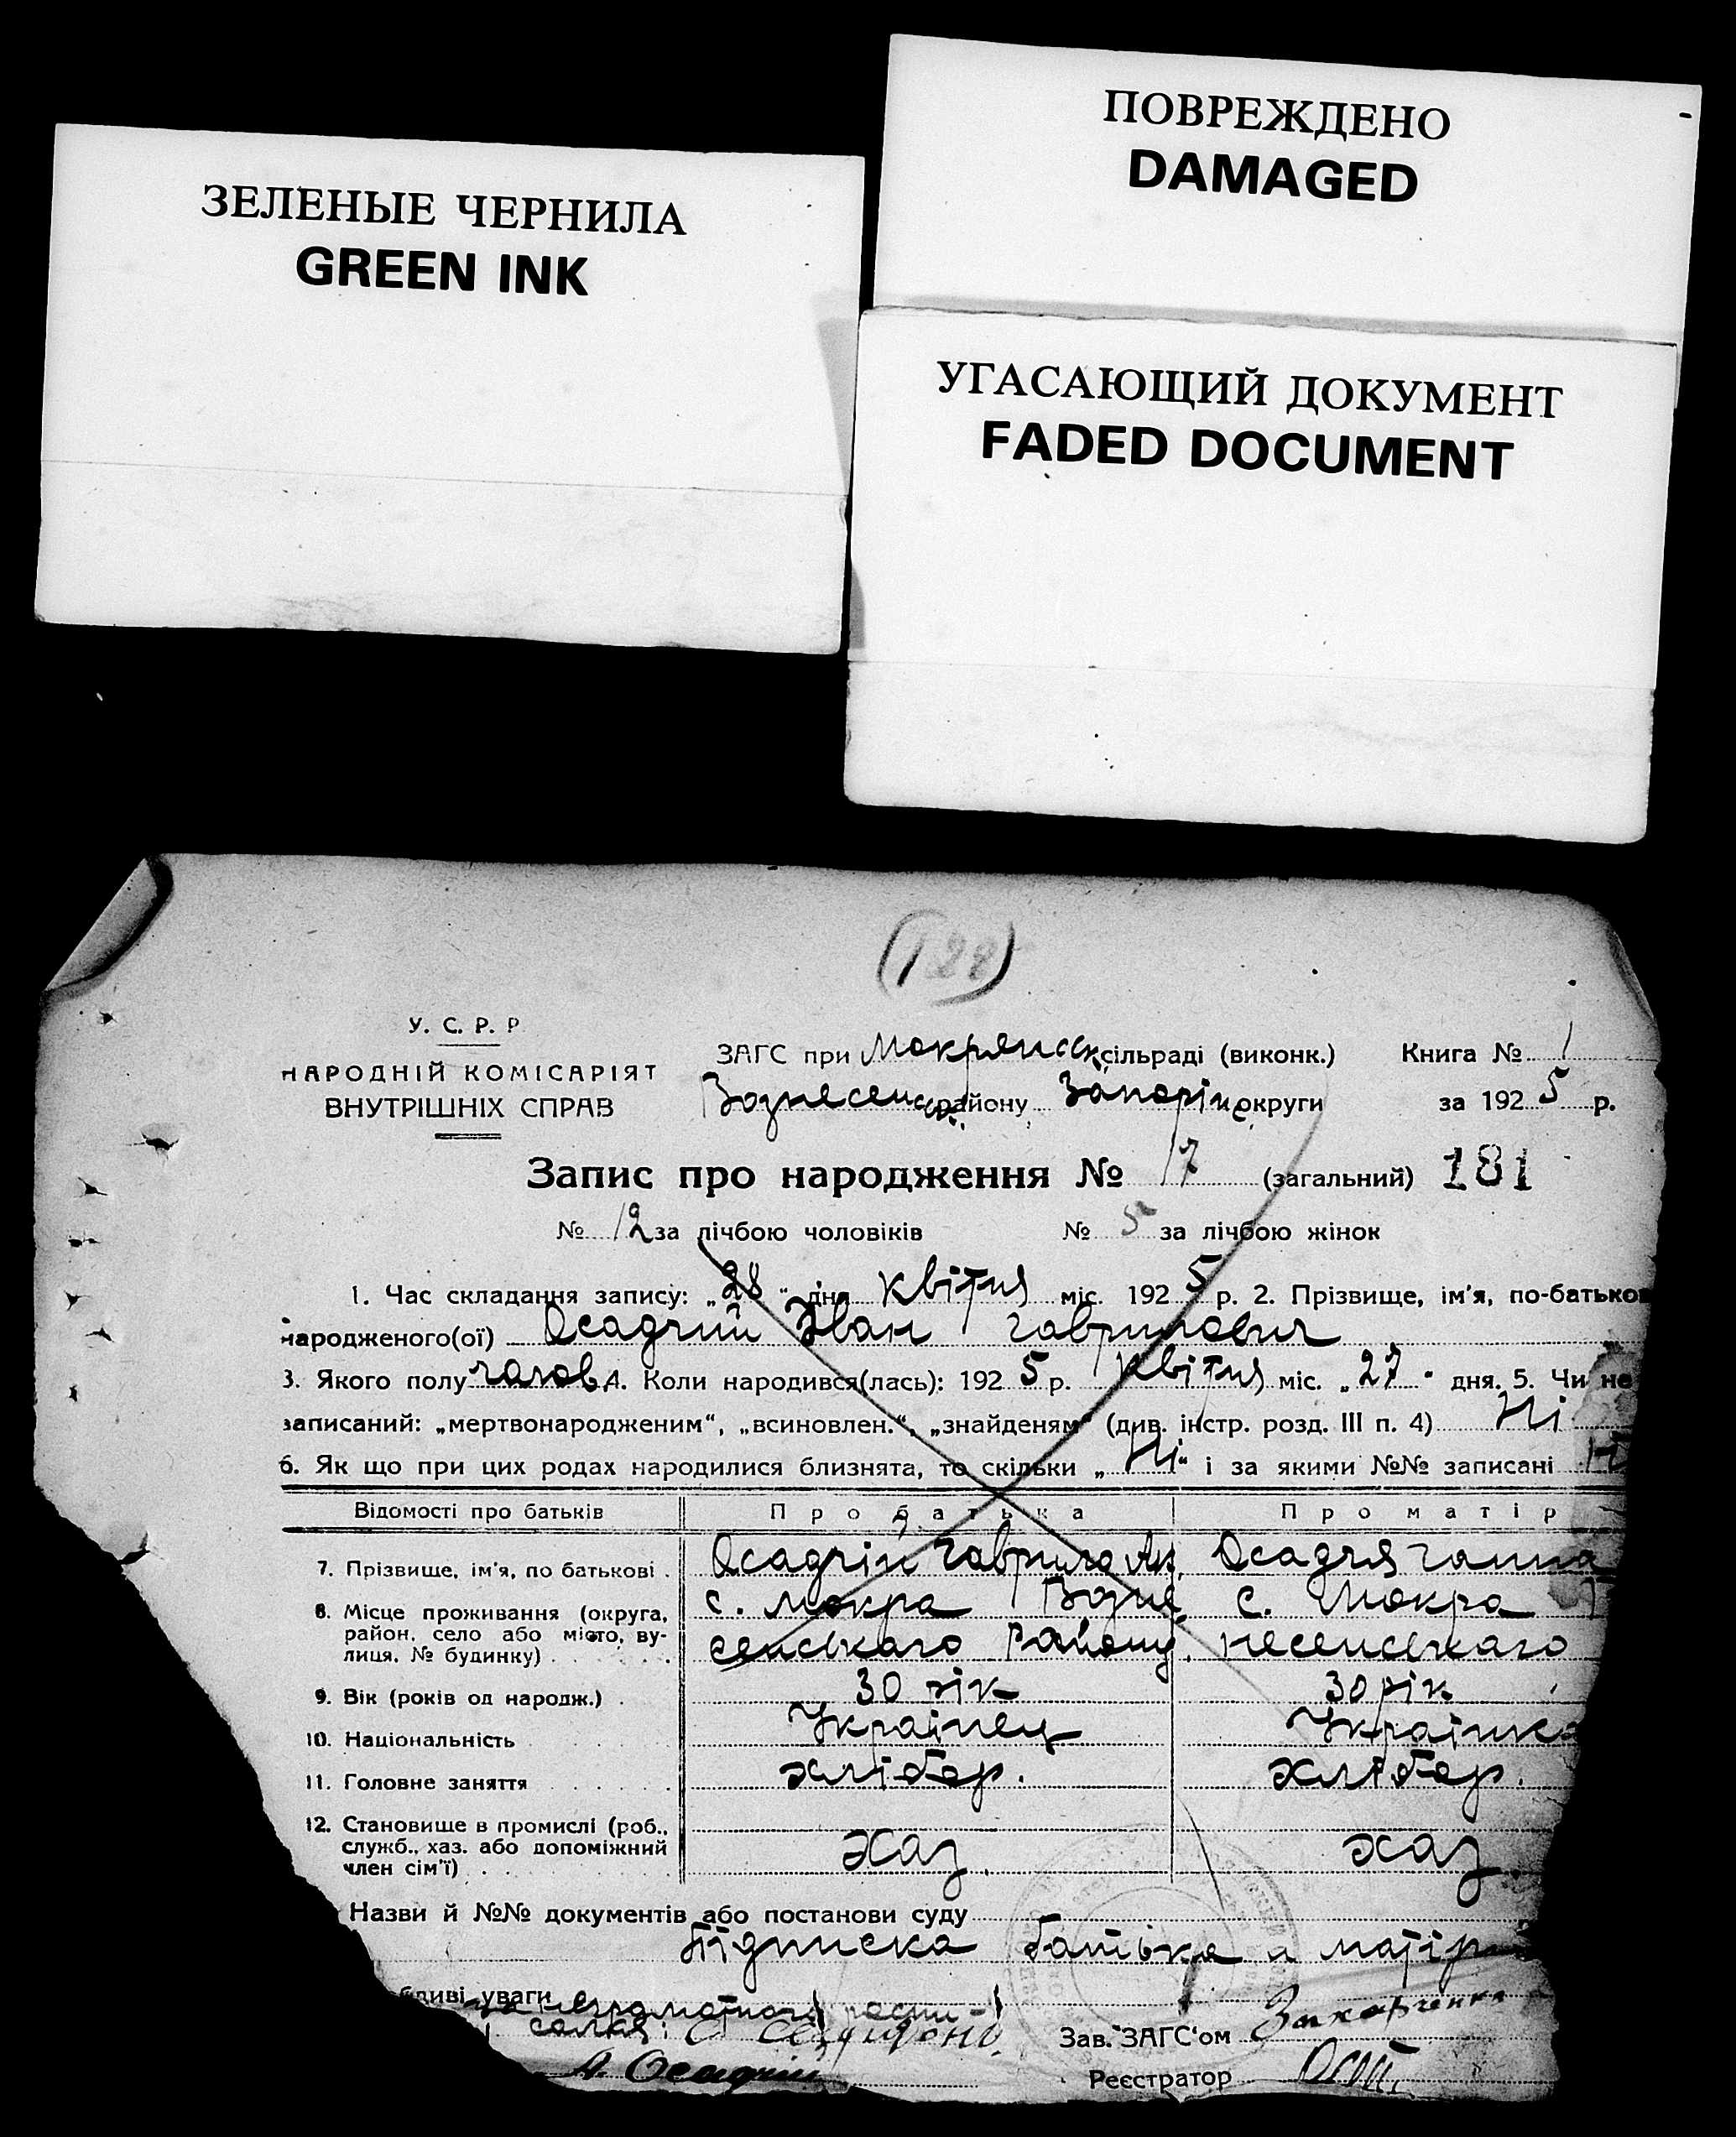 ЗЕЛЕНЫЕ ЧЕРНИЛА
GREEN INK
ПОВРЕЖДЕНО
DAMAGED
УГАСАЮЩИЙ ДОКУМЕНТ
FADED DOCUMENT
(122)
У. С. Р. Р
НАРОДНІЙ КОМІСАРІЯТ
ВНУТРІШНІХ СПРАВ
ЗАГС при Мокрянськ. сільраді (виконк.) Книга № 1
Вознесенськ. району Запоріж. округи за 1925 р.
Запис про народження № 17 (загальний) 181
№ 12 за лічбою чоловіків № 5 за лічбою жінок
1. Час складання запису: „28“ дня квітня міс. 1925 р. 2. Прізвище, ім'я, по-батьков
народженого(ої) Осадчий Іван Гаврилович
3. Якого полу чолов. 4. Коли народився(лась): 1925 р. Квітня міс. „27“ дня. 5. Чи не
записаний: „мертвонародженим“, „всиновлен.“, „знайденям“ (див. інстр. розд. III п. 4) Ні
6. Як що при цих родах народилися близнята, то скільки „Ні“ і за якими №№ записані
Відомості про батьків Про батька Про матір
7. Прізвище, ім'я, по батькові . Осадчій Гаврило Ан. Осадчя Ганна
8. Місце проживання (округа, район, село або місто, вулиця, № будинку) с. Мокра Возне с. Мокра
сенського Району. несенського
9. Вік (років од народж.) . 30 рік 30 рік
10. Національність Українец Українка
11. Головне заняття хлібор. хлібор.
12. Становище в промислі (роб., служб., хаз. або допоміжний член сім'ї) . . хаз. хаз.
Назви й №№ документів або постанови суду
Підписка батька и матір
бливі уваги
неграмотного роспи-
Зав. ЗАГС'ом Захарченко
А. Осадчій
Реєстратор